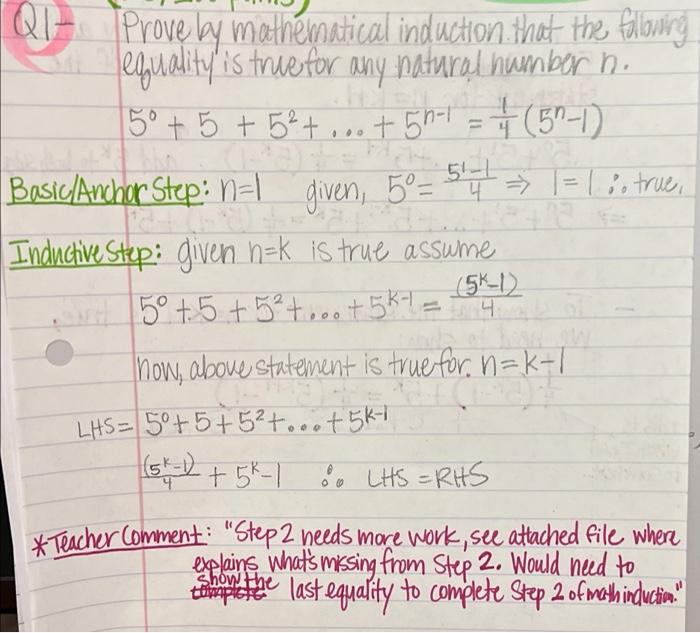 Q1- Prove by mathematical induction that the following
equality is true for any natural number n.
5⁰ + 5 + 5² + ... + 5ⁿ⁻¹ = 1/4 (5ⁿ-1)
Basic/Anchor Step: n=1 given, 5⁰ = 5¹-1/4 ⇒ 1=1 ∴ true.
Inductive Step: given n=k is true assume
5⁰ + 5 + 5² + ... + 5ᵏ⁻¹ = (5ᵏ-1)/4
now, above statement is true for n=k-1
LHS = 5⁰ + 5 + 5² + ... + 5ᵏ⁻¹
(5ᵏ-1)/4 + 5ᵏ-1 ∴ LHS = RHS
*Teacher Comment: "Step 2 needs more work, see attached file where
explains what's missing from Step 2. Would need to
show the
complete last equality to complete Step 2 of math induction."